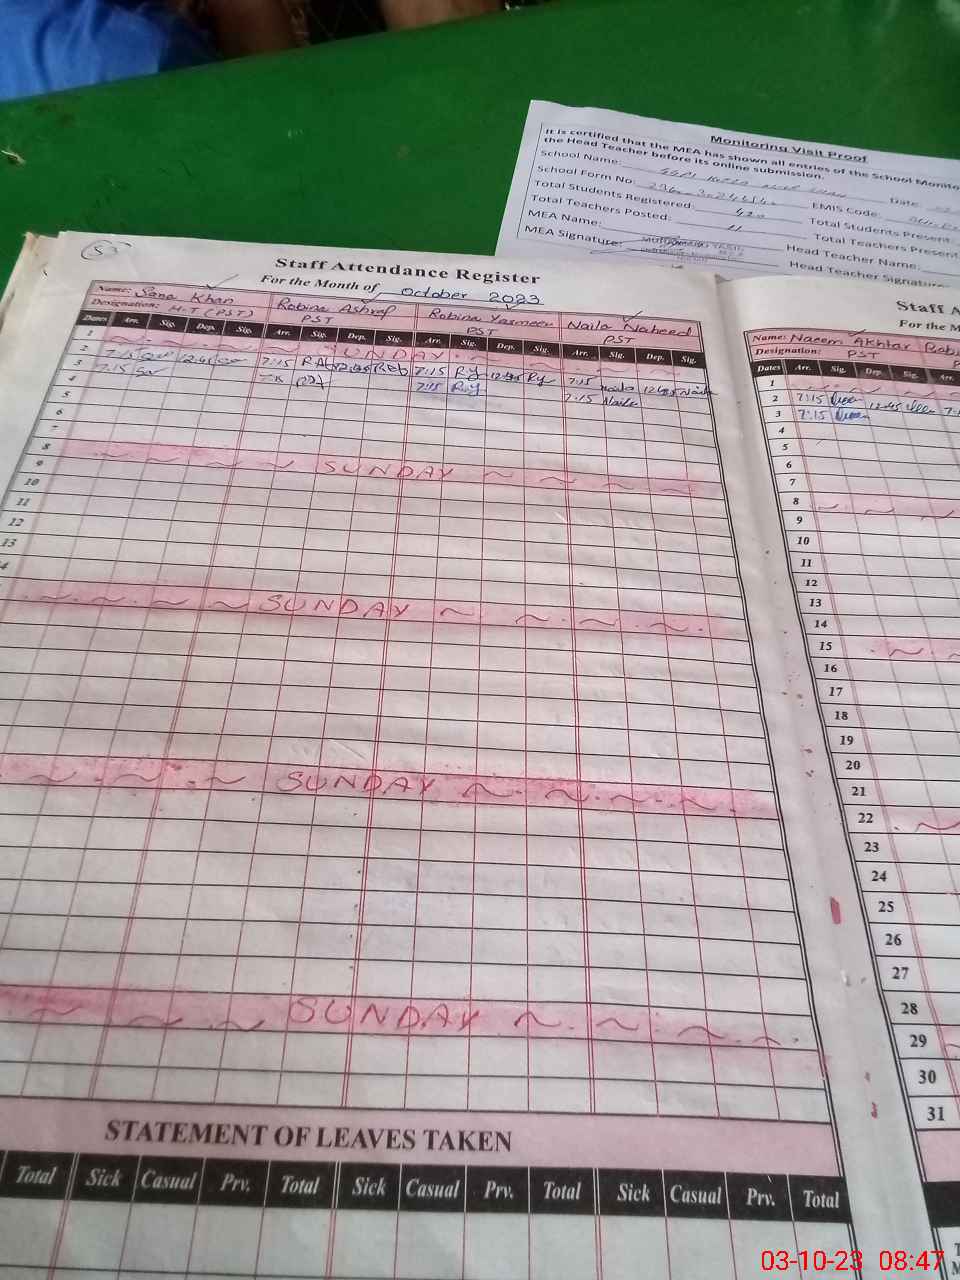 Monitoring Visit Proof
It is certified that the MEA has shown all entries of the School Monito
the Head Teacher before its online submission.
School Name:
Date:
School Form No.
EMIS Code:
Total Students Registered: 420
Total Students Present:
Total Teachers Posted: 11
Total Teachers Present
MEA Name:
Head Teacher Name:
MEA Signature:
Head Teacher Signatur
53
Staff Attendance Register
For the Month of October 2023
Name: Sana Khan Robina Ashraf Robina Yasmeen Naila Naheed
Designation: H.T (PST) PST PST PST
Dates Arr. Sig. Dep. Sig. Arr. Sig. Dep. Sig. Arr. Sig. Dep. Sig. Arr. Sig. Dep. Sig.
1 SUNDAY
2 7:15 12:45 7:15 RAb 12:45 RAb 7:15 Ry 12:45 Ry 7:15 Naila 12:45 Naila
3 7:15 7:15 Ry 7:15 Naila
4
5
6
7
8 SUNDAY
9
10
11
12
13
4
SUNDAY
SUNDAY
SUNDAY
STATEMENT OF LEAVES TAKEN
Total Sick Casual Prv. Total Sick Casual Prv. Total Sick Casual Prv. Total
Staff A
For the M
Name: Naeem Akhtar Robi
Designation: PST
Dates Arr. Sig. Dep. Sig. Arr.
1
2 7:15 12:45 7:1
3 7:15
4
5
6
7
8
9
10
11
12
13
14
15
16
17
18
19
20
21
22
23
24
25
26
27
28
29
30
31
03-10-23 08:47